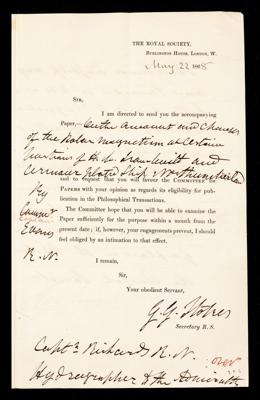 THE ROYAL SOCIETY.
BURLINGTON HOUSE, LONDON, W.
May 22 1868
SIR,
I am directed to send you the accompanying
Paper,—On the amount and Changes
of the Polar Magnetism at Certain
positions of H. M. Iron-built and
Armour plated Ship Northumberland
and to request that you will favour the COMMITTEE OF
By
PAPERS with your opinion as regards its eligibility for pub-
lication in the Philosophical Transactions.
The Committee hope that you will be able to examine the
Evans
Paper sufficiently for the purpose within a month from
the present date; if, however, your engagements prevent, I should
R. N.
feel obliged by an intimation to that effect.
I remain,
Sir,
Your obedient Servant,
G. G. Stokes
Secretary R. S.
Captn Richards R. N.
over
Hydrographer to the Admiralty